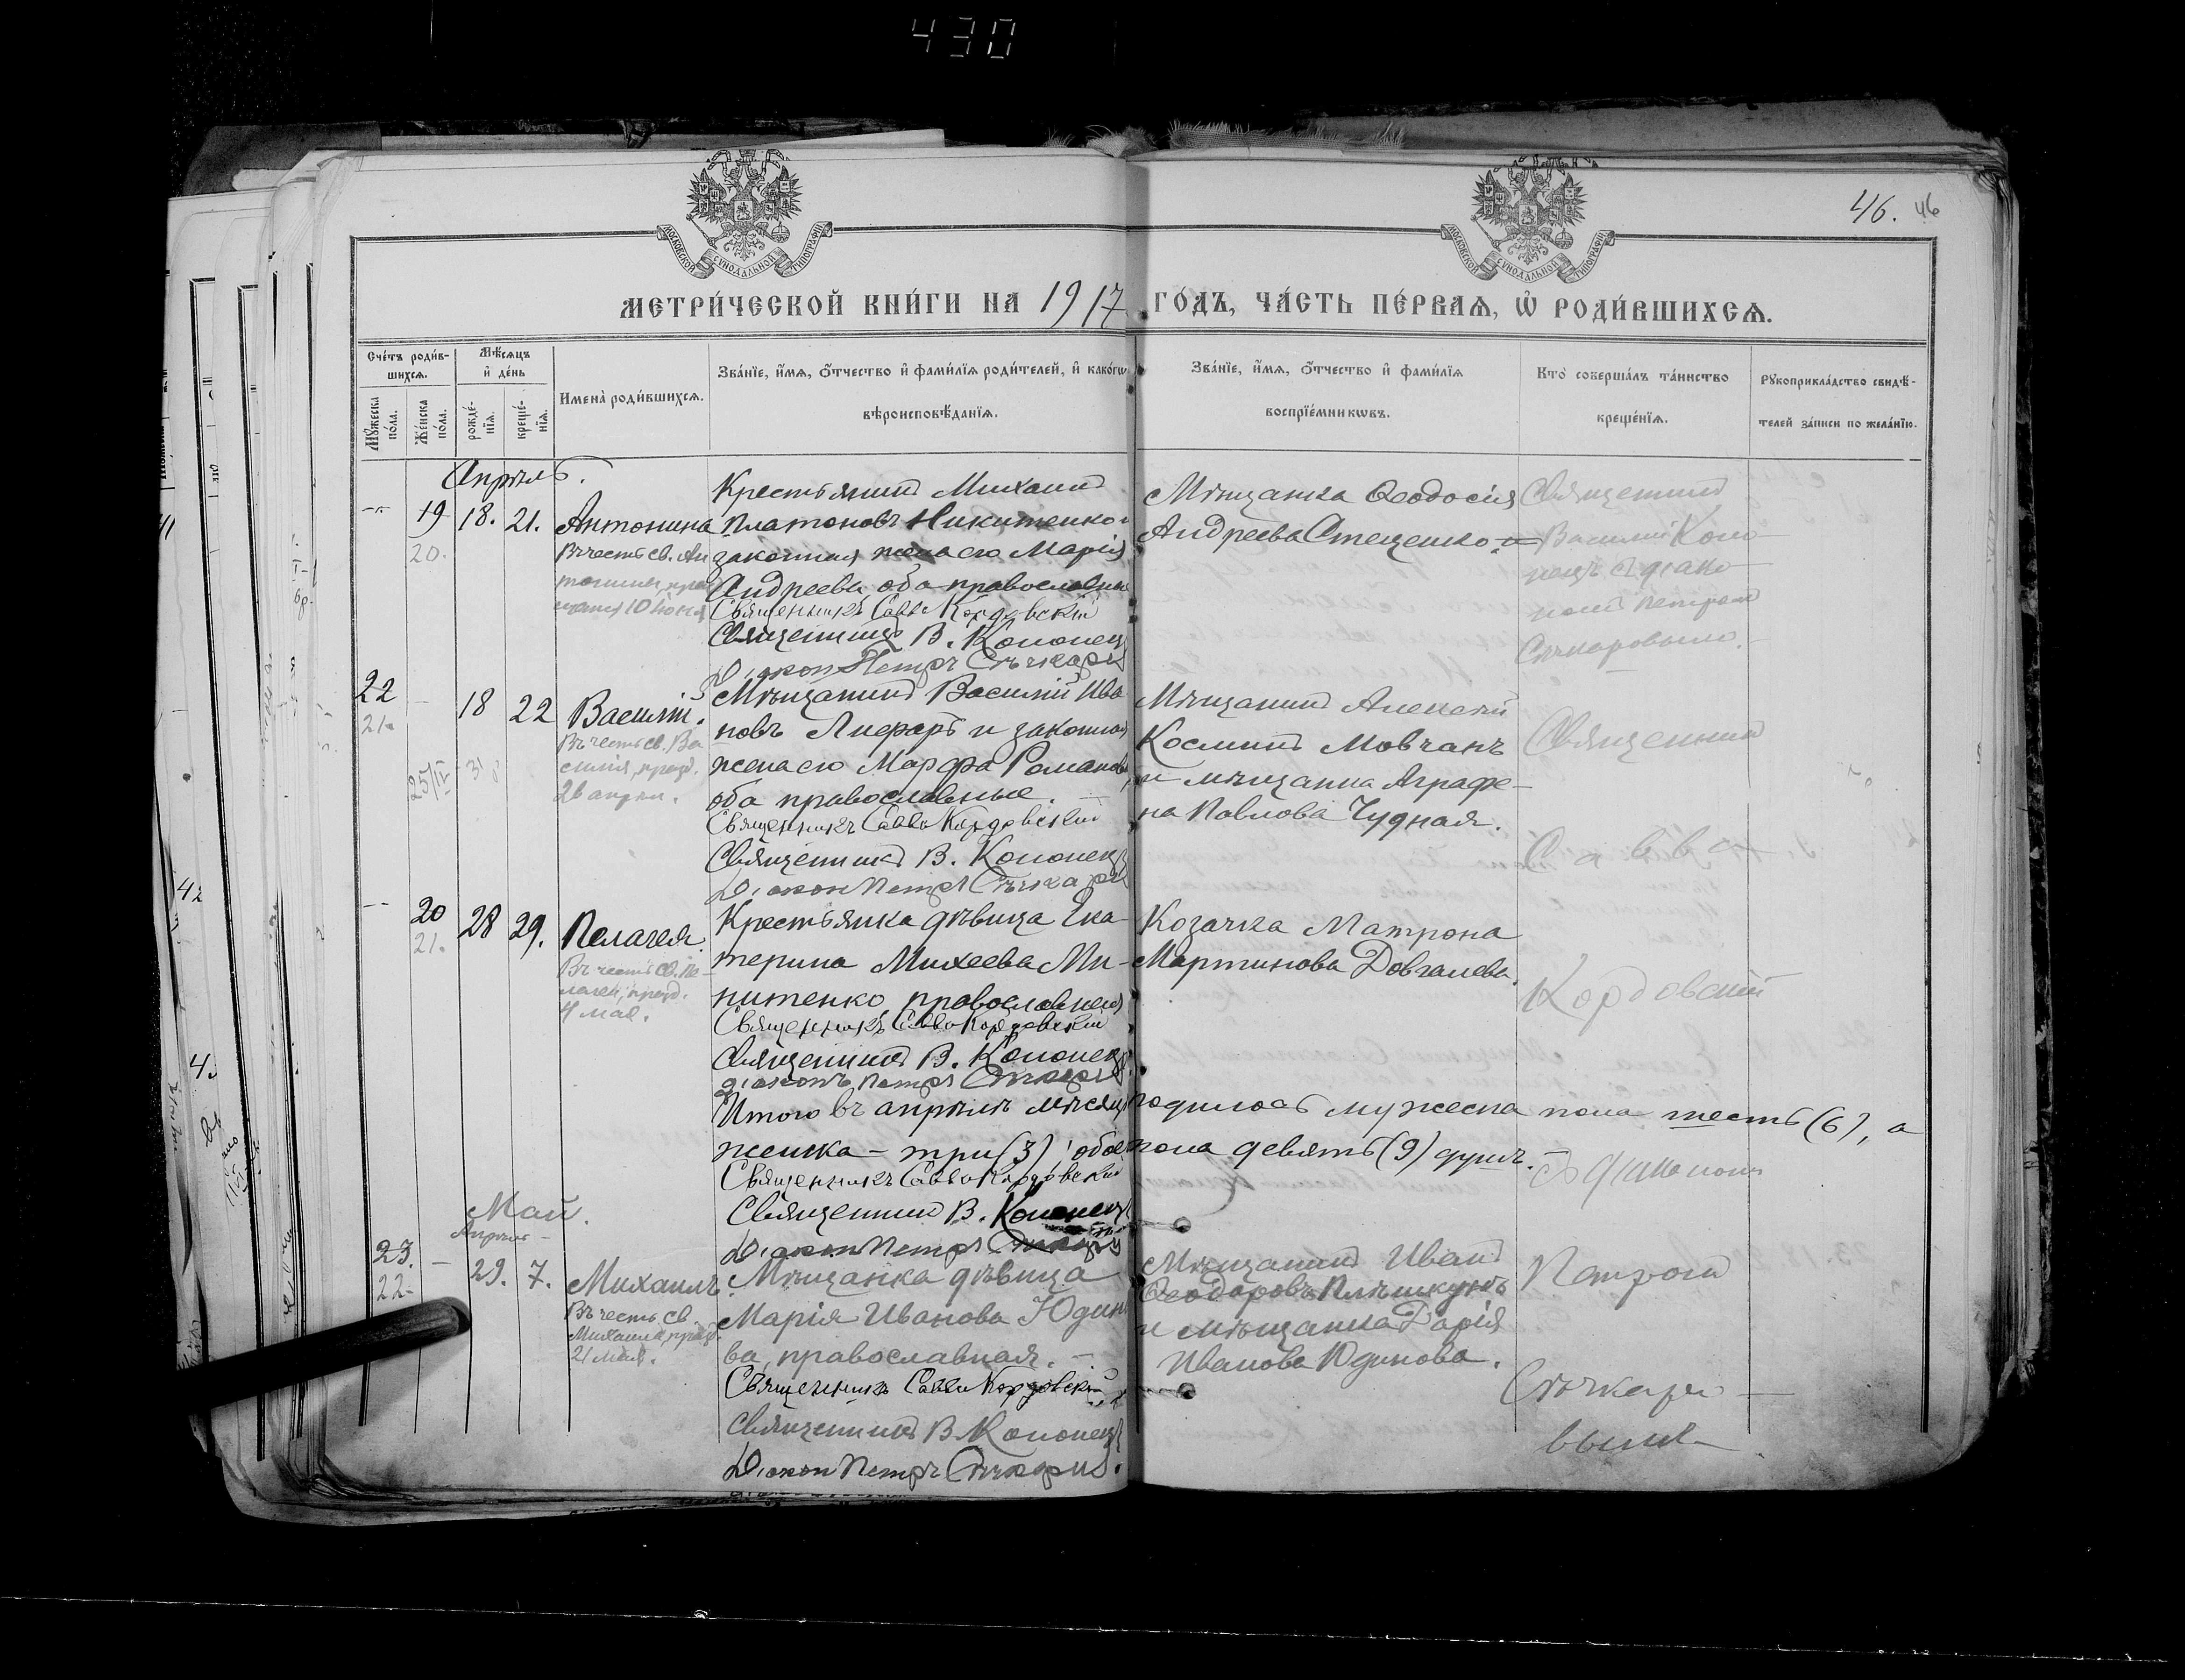 430
46. 46
МОСКОВСКОЙ СѴНОДАЛЬНОЙ ТИПОГРАФІИ
МОСКОВСКОЙ СѴНОДАЛЬНОЙ ТИПОГРАФІИ
МЕТРИ́ЧЕСКОЙ КНИ́ГИ НА 1917 ГО́ДЪ, ЧА́СТЬ ПЕ́РВАЯ, Ѡ РОДИ́ВШИХСѦ.
Сче́тъ роди́в-
шихсѧ.
Мꙋжеска по́ла.
Же́нска по́ла.
Мѣ́сѧцъ и де́нь
рожде́-
нїѧ.
креще́-
нїѧ.
Имена̀ роди́вшихсѧ.
Зва́нїе, и҆́мѧ, ѻ҆́тчество и҆ фами́лїѧ роди́телей, и҆ како́гѡ
вѣроисповѣ́данїѧ.
Зва́нїе, и҆́мѧ, ѻ҆́тчество и҆ фами́лїѧ
воспрїе́мникѡвъ.
Кто̀ соверша́лъ та́инство
креще́нїѧ.
Рꙋкоприкла́дство свидѣ́-
телей за́писи по жела́нїю.
Апрѣль.
19 18. 21.
20.
Антонина
Въ честь св. Ан
тонины, праз
10 іюня
Крестьянинъ Михаилъ
Платоновъ Никитенко и
законная жена его Марія
Андреева, оба православны
Священникъ Савва Кордовскій
Священникъ В. Кононец
Діаконъ Петръ Сѣчкарь
Мѣщанка Ѳеодосія
Андреева Стеценко.
Священникъ
Василій Коно-
нецъ съ діако-
номъ Петромъ
Сѣчкаровымъ.
22 18 22
21.
25/IV
Василій.
Въ честь св. Ва
силія, празд.
26 апрѣл.
Мѣщанинъ Василій Ива
новъ Лифарь и законная
жена его Марфа Романова
оба православные.
Священникъ Савва Кордовскій
Священникъ В. Кононец
Діаконъ Петръ Сѣчкарь
Мѣщанинъ Алексѣй
Косминъ Мовчанъ
и мѣщанка Аграфе-
на Павлова Чудная.
Священникъ
Савва
Кордовскій
съ діакономъ
Петромъ
Сѣчкаре-
вымъ.
20 28 29.
21.
Пелагея.
Въ честь св. Пе-
лагеи, празд.
4 мая.
Крестьянка дѣвица Ека-
терина Михеева Ми-
нитенко, православная
Священникъ Савва Кордовскій
Священникъ В. Кононец
діаконъ Петръ Сѣчкарь
Козачка Матрона
Мартинова Довгалева.
Итого въ апрѣлѣ мѣсяцѣ родилось мужеска пола шесть (6), а
женска – три (3) обоего пола девять (9) душъ.
Священникъ Савва Кордовскій
Священникъ В. Кононец
Діаконъ Петръ Сѣчкарь
Май.
Апрѣль
23. 29. 7.
22.
Михаилъ.
Въ честь св.
Михаила, празд.
21 мая.
Мѣщанка дѣвица
Марія Иванова Юдин
ва, православная.
Священникъ Савва Кордовскій
Священникъ В. Кононец
Діаконъ Петръ Сѣчкарь.
Мѣщанинъ Иванъ
Ѳеодоровъ Плѣшкунъ
и мѣщанка Дарія
Иванова Юдинова.